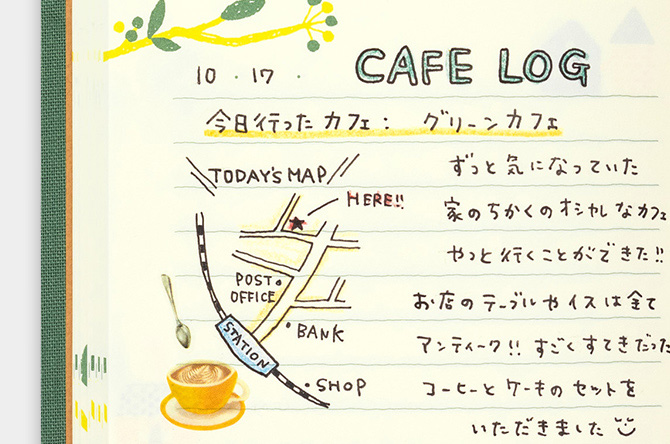 10・17・
CAFE LOG
今日行ったカフェ: グリーンカフェ
TODAY'S MAP
HERE!!
POST OFFICE
STATION
BANK
SHOP
ずっと気になっていた
家のちかくのオシャレなカフェ
やっと行くことができた!!
お店のテーブルやイスは全て
アンティーク!! すごくすてきだった
コーヒーとケーキのセットを
いただきました